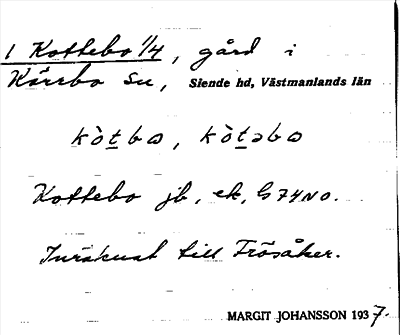 1 Kottebo 1/4, gård i
Kärrbo sn, Siende hd, Västmanlands län
kòtbo, kòtəbo
Kottebo jb, ek, G74NO.
Inräknat till Frösåker.
MARGIT JOHANSSON 1937.